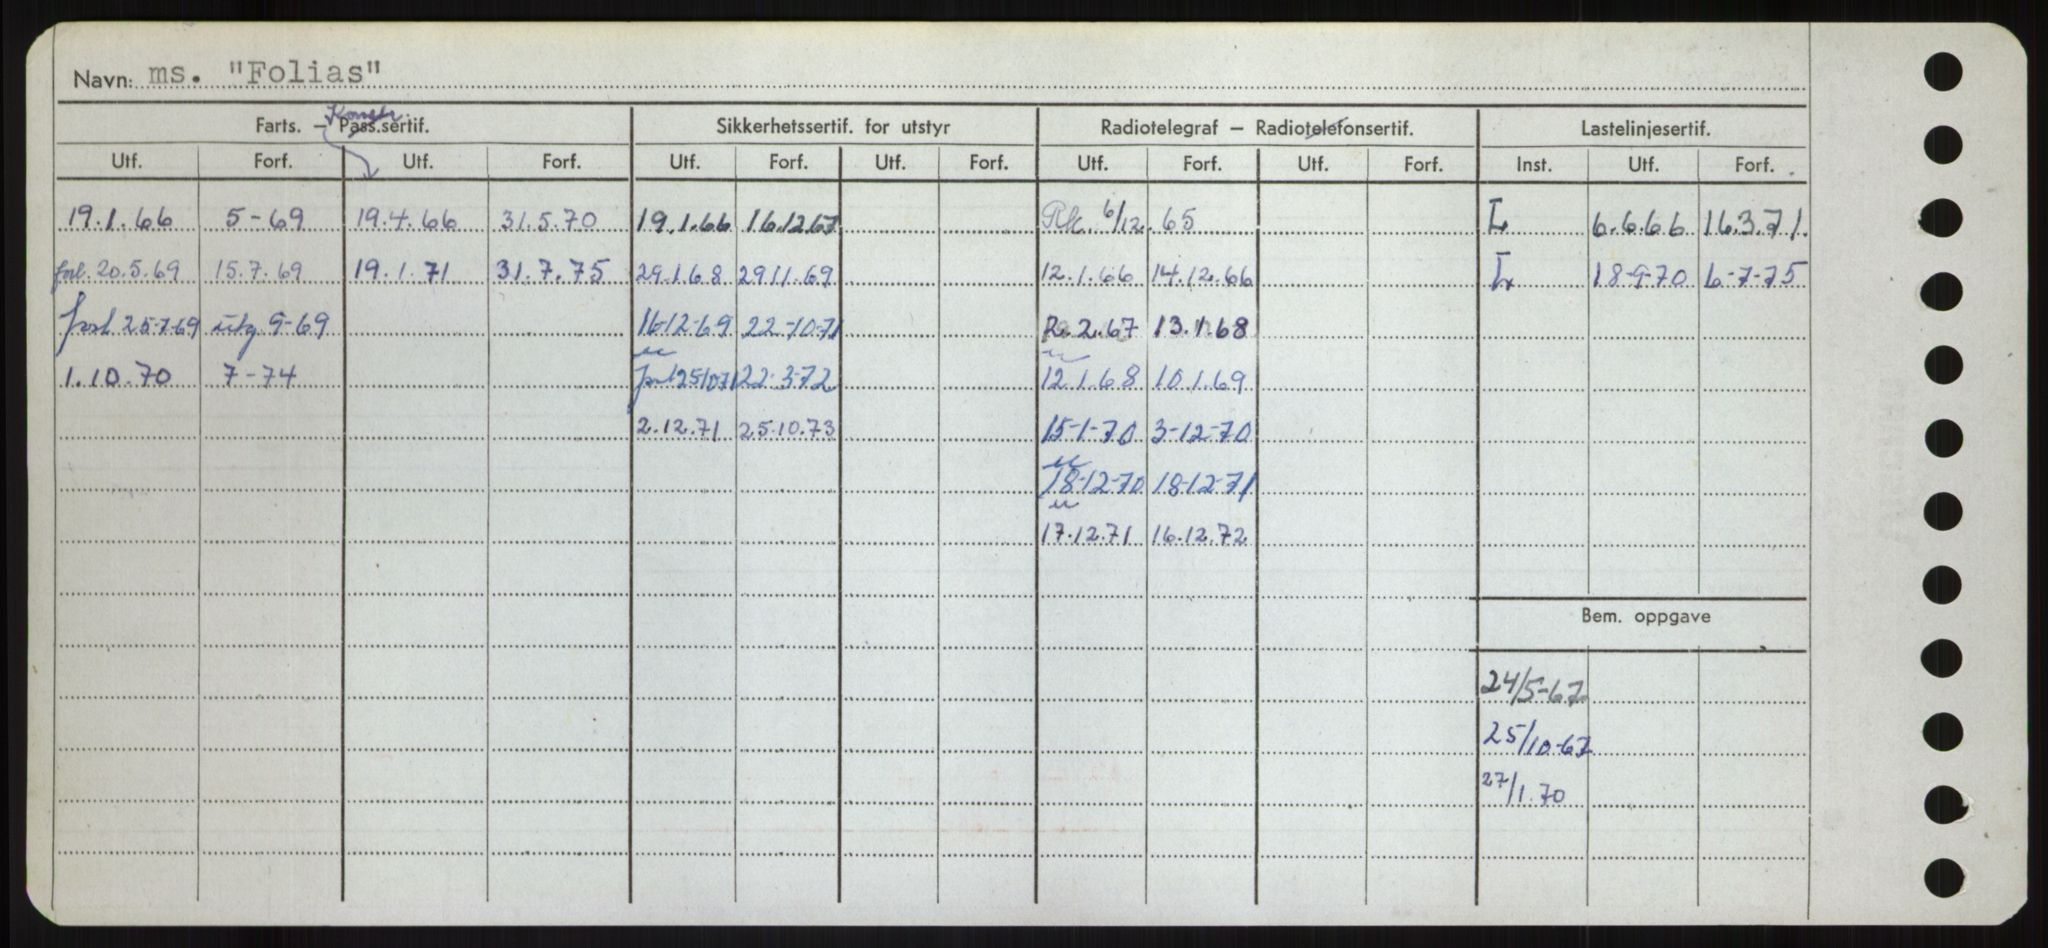 Navn: ms. "Folias"
Konstr.
Farts. – Pass.sertif. Sikkerhetssertif. for utstyr Radiotelegraf – Radiotelefonsertif. Lastelinjesertif.
Utf. Forf. Utf. Forf. Utf. Forf. Utf. Forf. Utf. Forf. Utf. Forf. Inst. Utf. Forf.
19.1.66 5-69 19.4.66 31.5.70 19.1.66 16.12.67 Rk. 6/12. 65 L 6.6.66 16.3.71.
forl. 20.5.69 15.7.69 19.1.71 31.7.75 29.1.68 29.11.69 12.1.66 14.12.66 L 18-9-70 6-7-75
forl 25-7-69 utg 9-69 16-12-69 22-10-71 2.67 13.1.68
1.10.70 7-74 25/10 71 22-3-72 12.1.68 10.1.69
2.12.71 25.10.73 15-1-70 3-12-70
18-12-70 18-12-71
17.12.71 16.12.72
Bem. oppgave
24/5-67
25/10-67
27/1.70